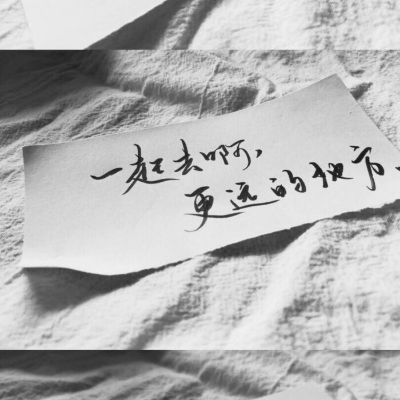 一起去啊,
更远的地方.